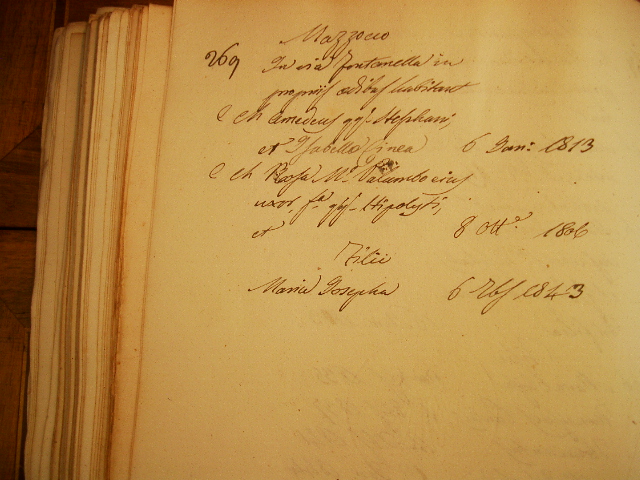 Mazzocco
269 In via Fontanella in
propriis ædibus habitant
C Ch Amedeus qm Stephani,
et Isabella Cinea 6 Jan: 1813
C Ch Rosa Ma Palumbo ejus
uxor, fa qm Hipolyti,
et 8 Otte 1806
Filii
Maria Josepha 6 1843